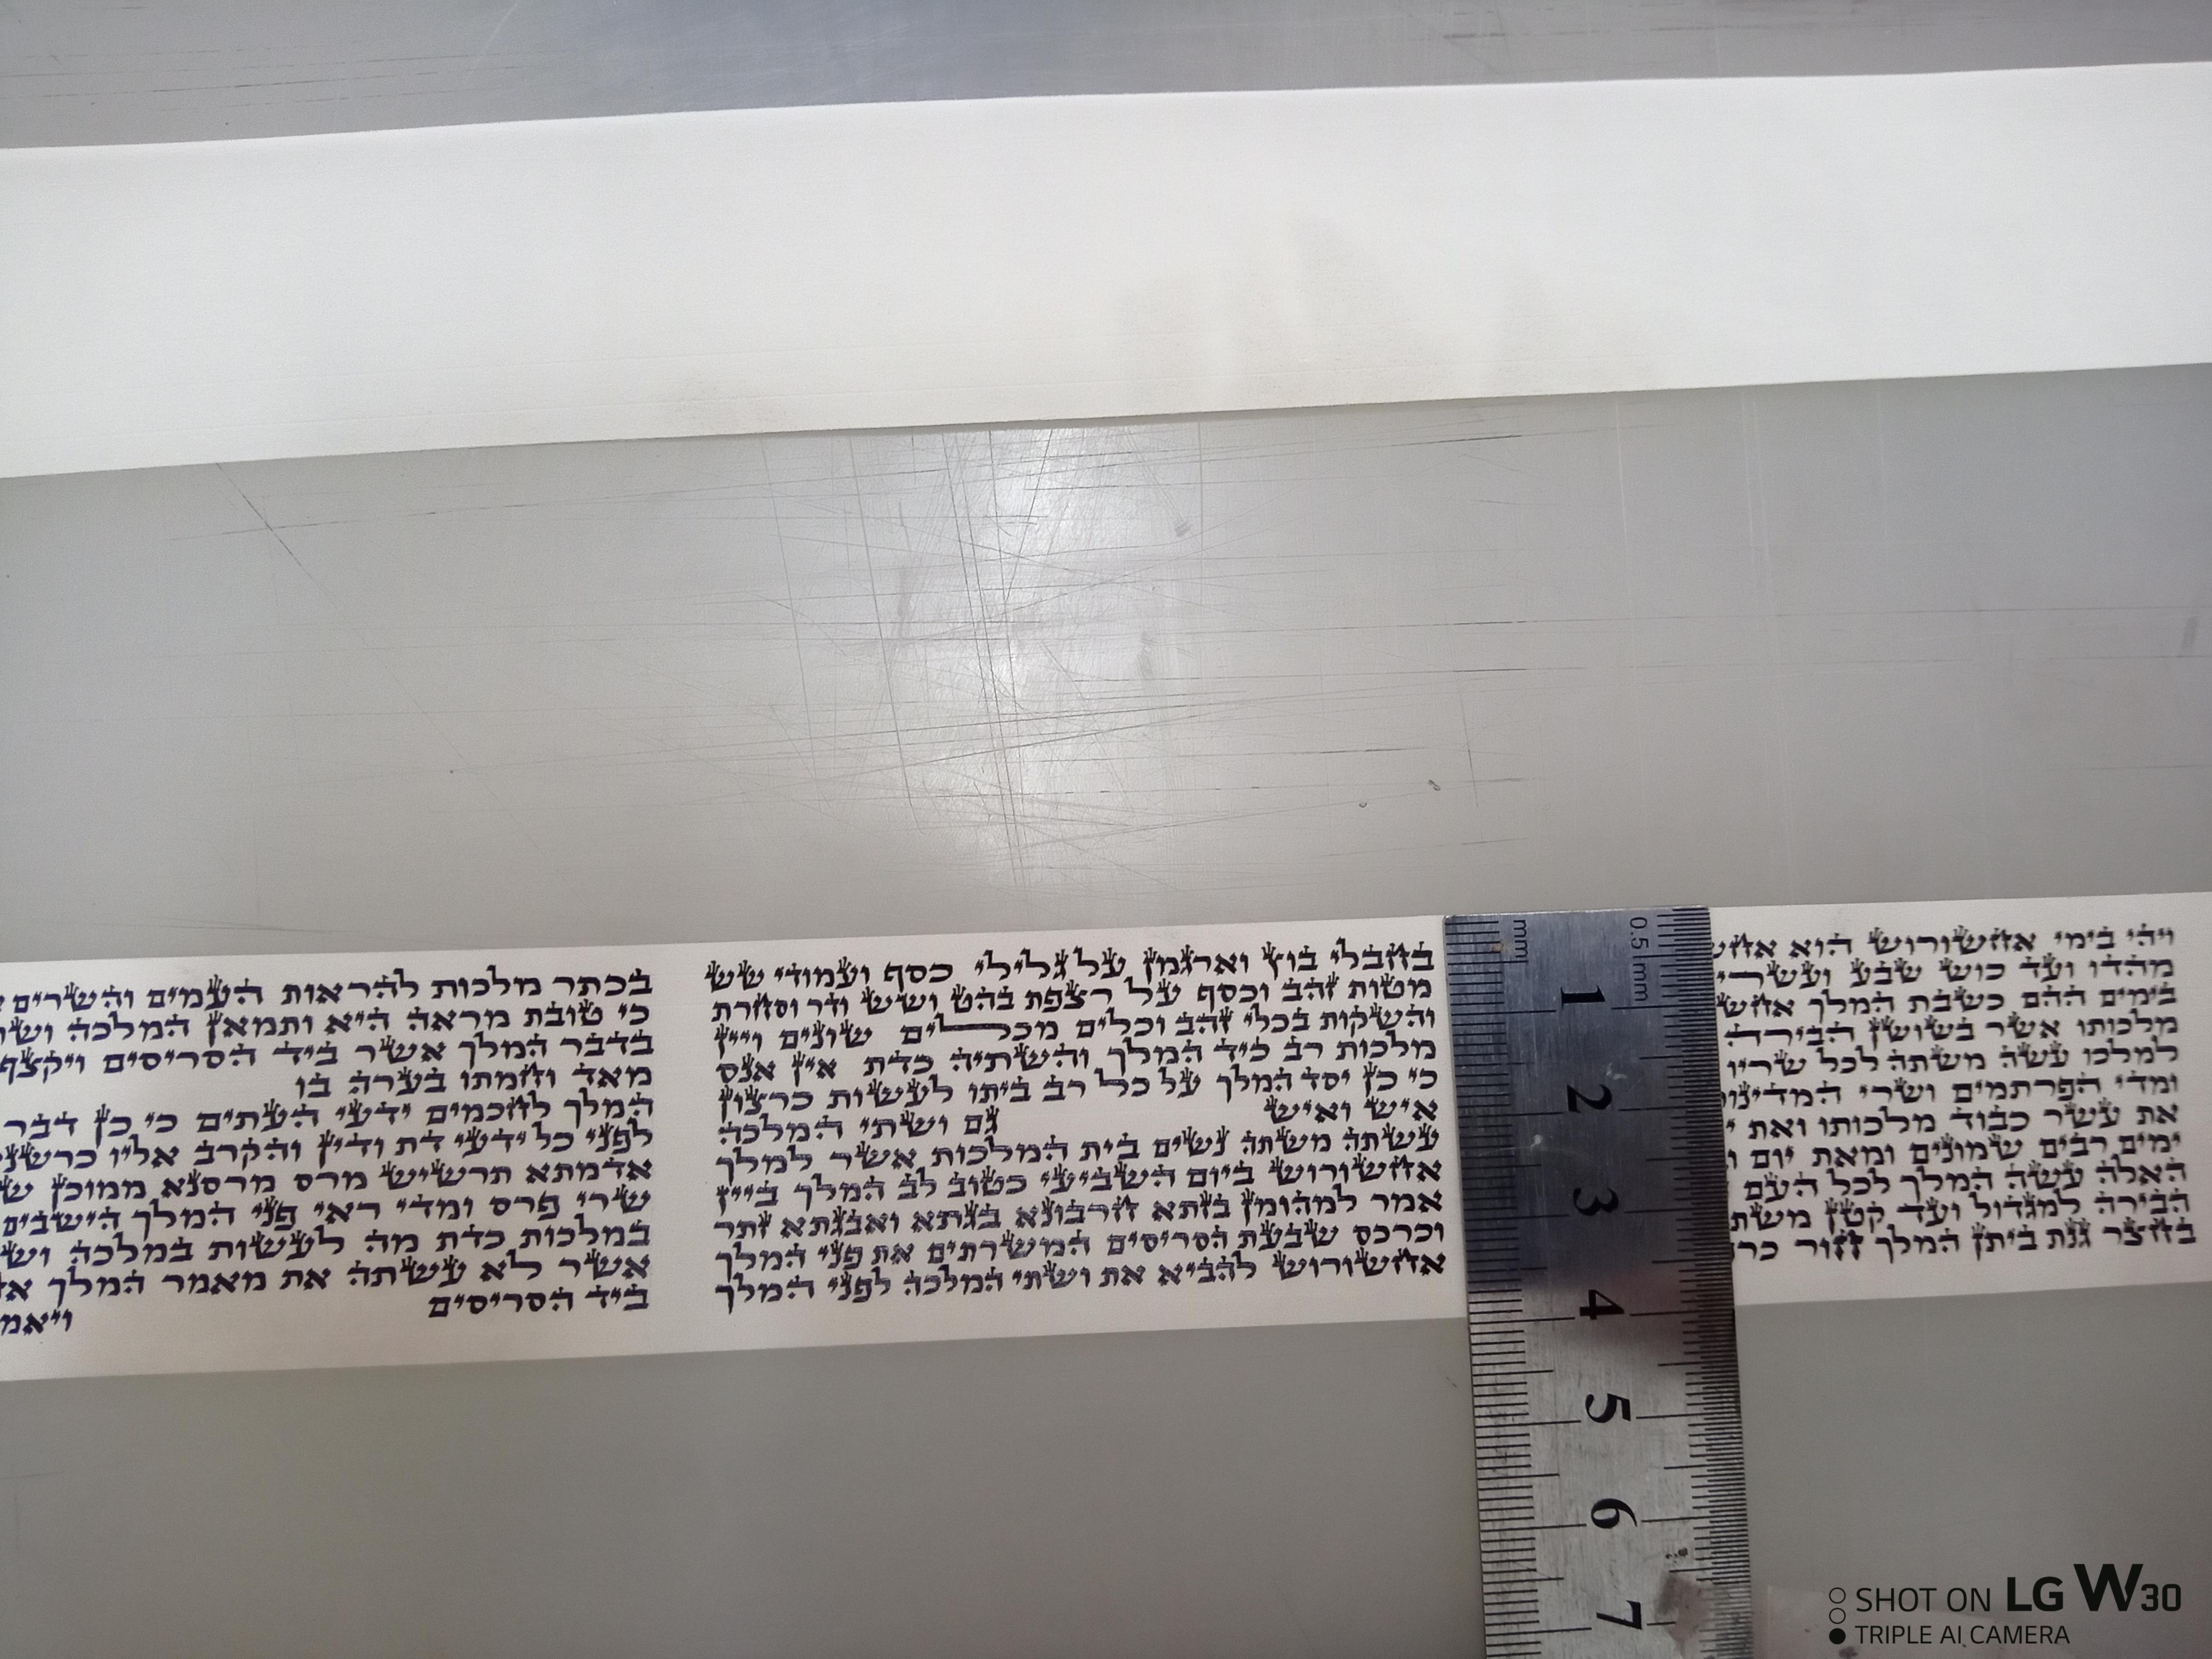 ויהי בימי אחשורוש הוא אחש
מהדו ועד כוש שבע ועשרי
בימים ההם כשבת המלך אחש
מלכותו אשר בשושן הבירה
למלכו עשה משתה לכל שריו
ומדי הפרתמים ושרי המדינו
את עשר כבוד מלכותו ואת י
ימים רבים שמונים ומאת יום ו
האלה עשה המלך לכל העם
הבירה למגדול ועד קטן משת
בחצר גנת ביתן המלך חור כר
בחבלי בוץ וארגמן על גלילי כסף ועמודי שש
מטות זהב וכסף על רצפת בהט ושש ודר וסחרת
והשקות בכלי זהב וכלים מכלים שונים ויין
מלכות רב כיד המלך והשתיה כדת אין אנס
כי כן יסד המלך על כל רב ביתו לעשות כרצון
איש ואיש גם ושתי המלכה
עשתה משתה נשים בית המלכות אשר למלך
אחשורוש ביום השביעי כטוב לב המלך ביין
אמר למהומן בזתא חרבונא בגתא ואבגתא זתר
וכרכס שבעת הסריסים המשרתים את פני המלך
אחשורוש להביא את ושתי המלכה לפני המלך
בכתר מלכות להראות העמים והשרים
כי טובת מראה היא ותמאן המלכה וש
בדבר המלך אשר ביד הסריסים ויקצף
מאד וחמתו בערה בו
המלך לחכמים ידעי העתים כי כן דבר
לפני כל ידעי דת ודין והקרב אליו כרשנ
אדמתא תרשיש מרס מרסנא ממוכן ש
שרי פרס ומדי ראי פני המלך הישבים
במלכות כדת מה לעשות במלכה וש
אשר לא עשתה את מאמר המלך א
ביד הסריסים ויאמ
mm 0.5mm
1
2
3
4
5
6
7
SHOT ON LG W30
TRIPLE AI CAMERA